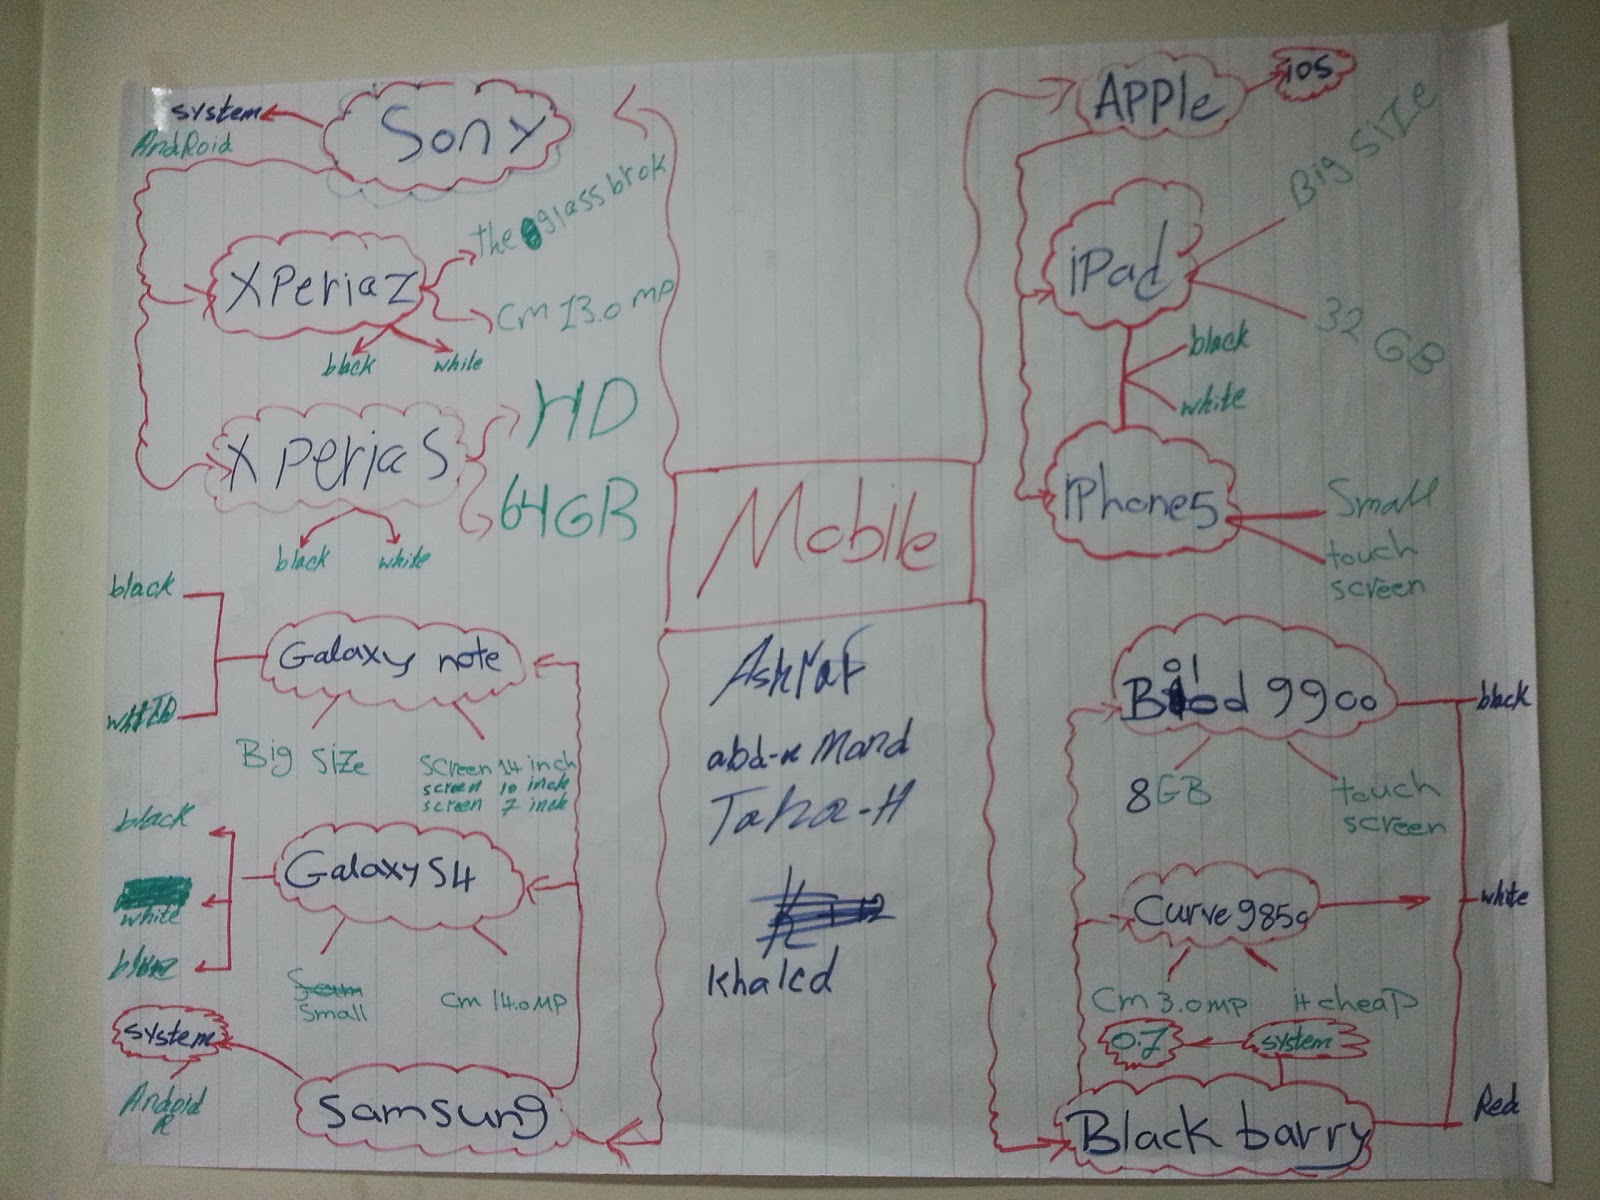 system
AndRoid
Sony
XPeria Z
the glass brok
Cm 13.0 MP
black
while
XPeria S
HD
64GB
black
white
black
Galaxy note
Big SiZe
screen 14 inch
screen 10 inch
screen 7 inch
black
Galaxy S4
white
Small
Cm 14.0 MP
system
Andoid
R
Samsung
Mobile
AshraF
Taha-H
khaled
APPle
ios
iPad
Big SiZe
32 GB
black
white
iPhone5
Small
touch
screen
9900
8GB
touch
screen
black
white
Red
Curve
Cm 3.0 MP
it cheap
system
0.7
Black barry